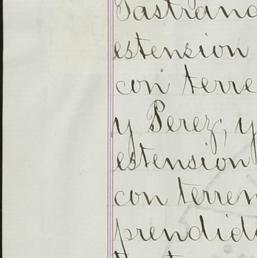 Pastrana
estension
con terre
y Perez, y
estension
con terren
prendid